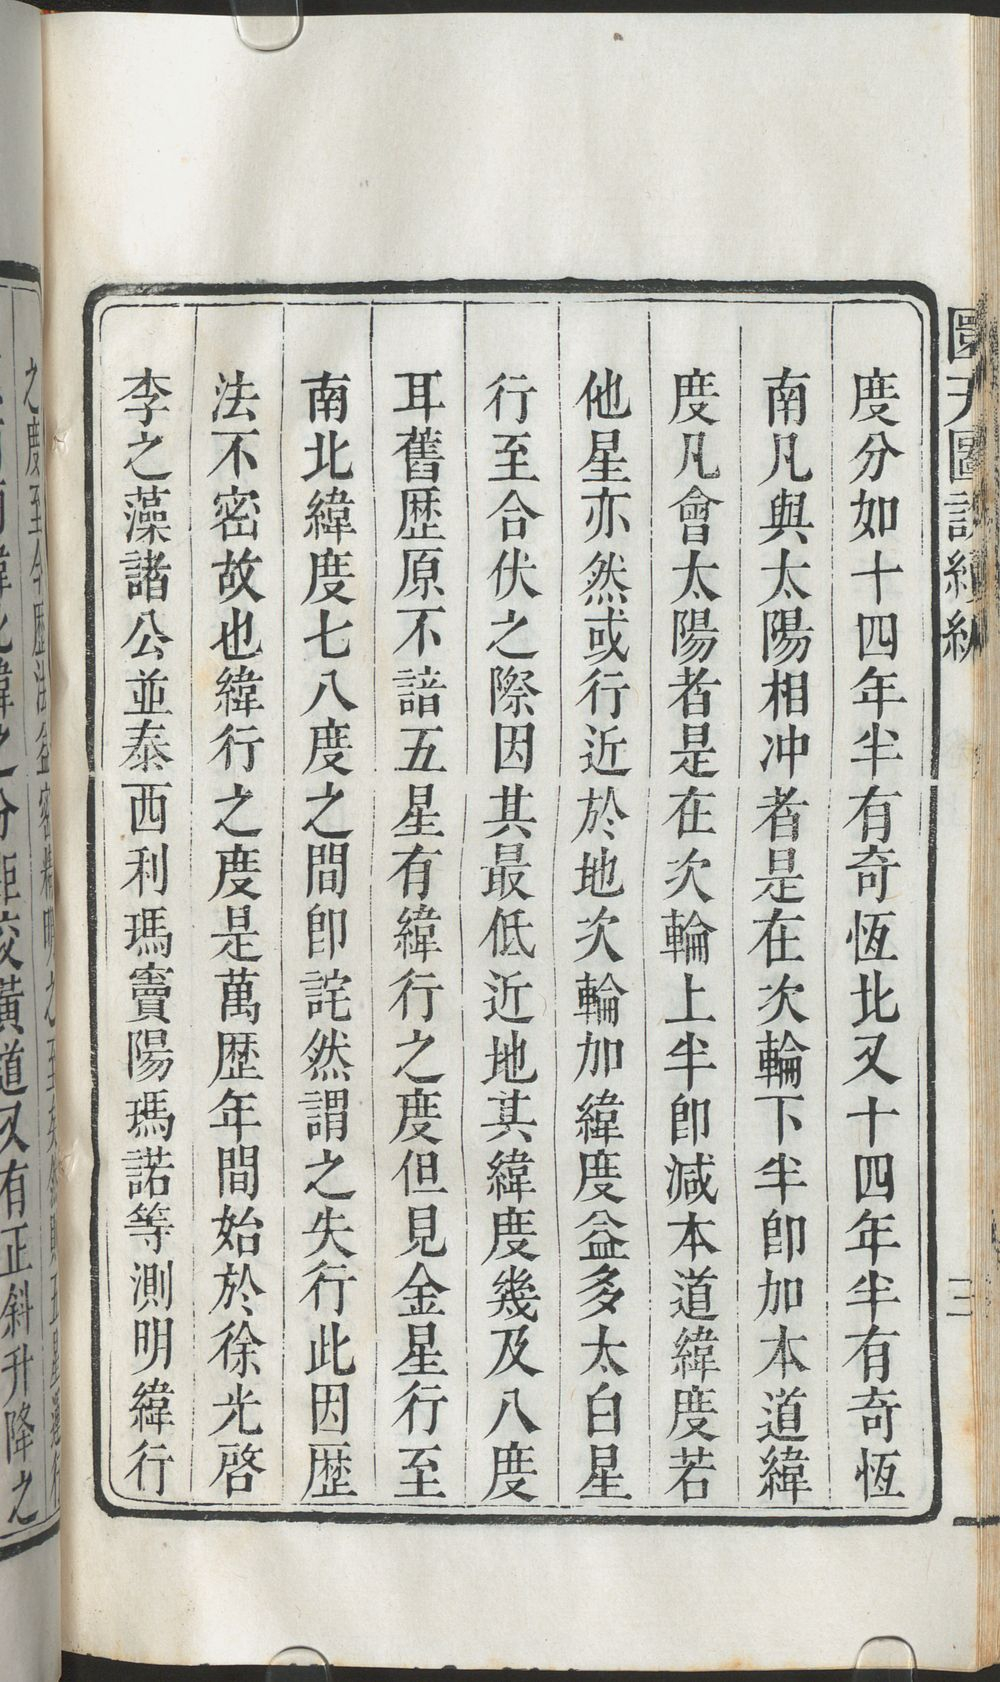 度分如十四年半有奇恆北又十四年半有奇恆
南凡與太陽相冲者是在次輪下半卽加本道緯
度凡會太陽者是在次輪上半卽減本道緯度若
他星亦然或行近於地次輪加緯度益多太白星
行至合伏之際因其最低近地其緯度幾及八度
耳舊歷原不諳五星有緯行之度但見金星行至
南北緯度七八度之間卽詫然謂之失行此因歷
法不密故也緯行之度是萬歷年間始於徐光啓
李之藻諸公並泰西利瑪竇陽瑪諾等測明緯行
之度至今歷法益密精明之至矣然則五星
緯之分距交黃道又有正斜升降之